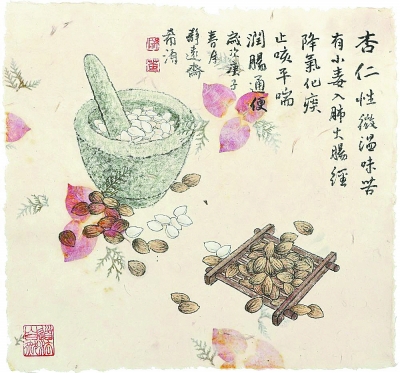 杏仁性微温味苦
有小毒入肺大腸經
降氣化痰
止咳平喘
潤腸通便
歲次庚子
春月
靜遠齋